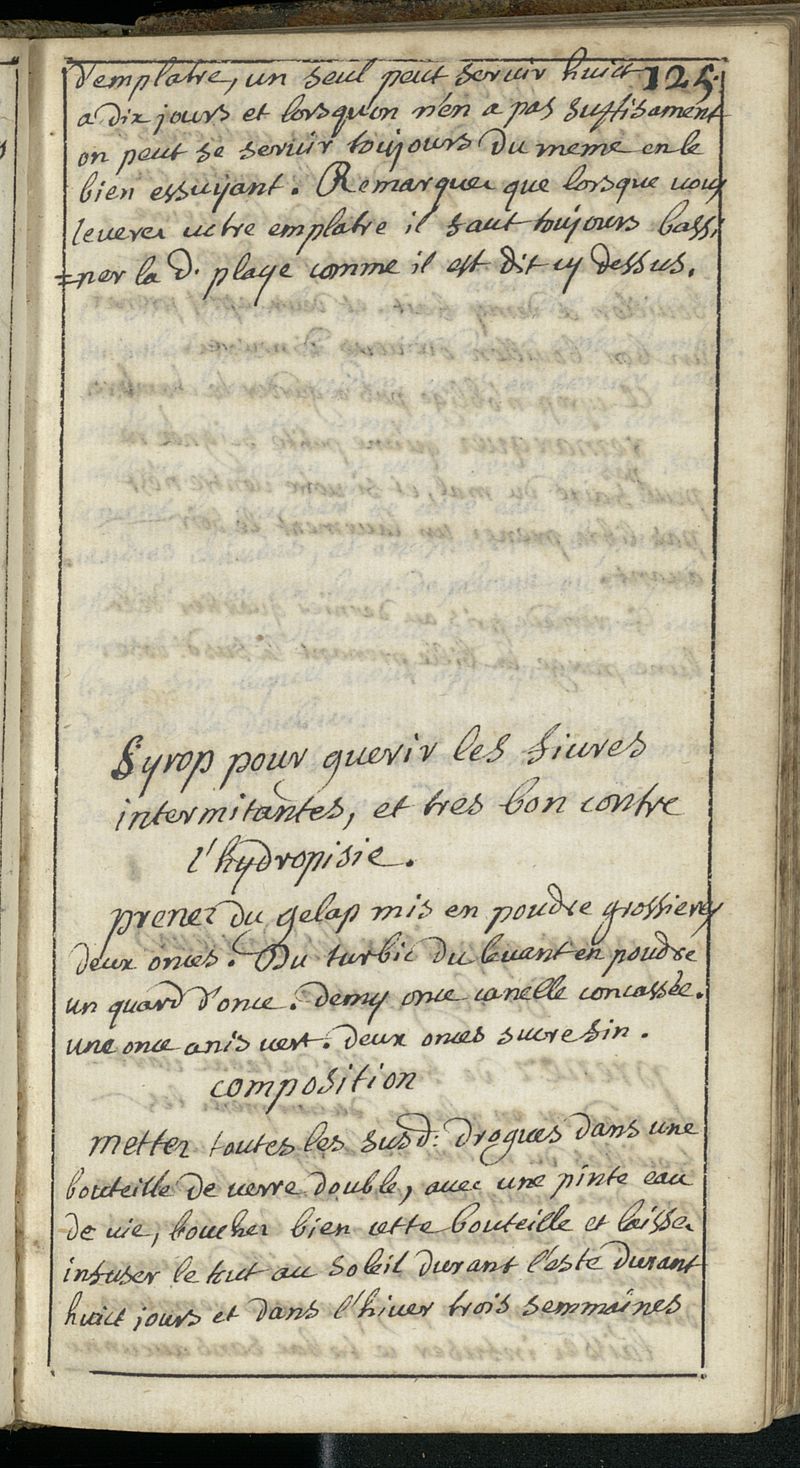 d'emplatre, un seul peut seruir huict 125.
a dix jours et lorsqu'on n'en a pas suffisament
on peut se seruir toujours du meme en le
bien essuyant. Remarquez que lorsque uous
leuerez uotre emplatre il faut toujours bassi
=ner la d. playe comme il est dit cy dessus.
Syrop pour guerir les fiures
intermitantes, et tres bon contre
l'hydropisie.
prenez du gelap mis en poudre grossieres
deux onces. Du turbic du leuant en poudre
un quard d'once. demy once canelle concassée.
une once anis uert. deux onces sucre fin.
composition
mettez toutes les susd: drogues dans une
bouteille de uerre double, auec une pinte eau
de uie, bouchez bien cette bouteille et laissez
infuser le tout au soleil durant l'esté durant
huict jours et dans l'hiuer trois semmaines